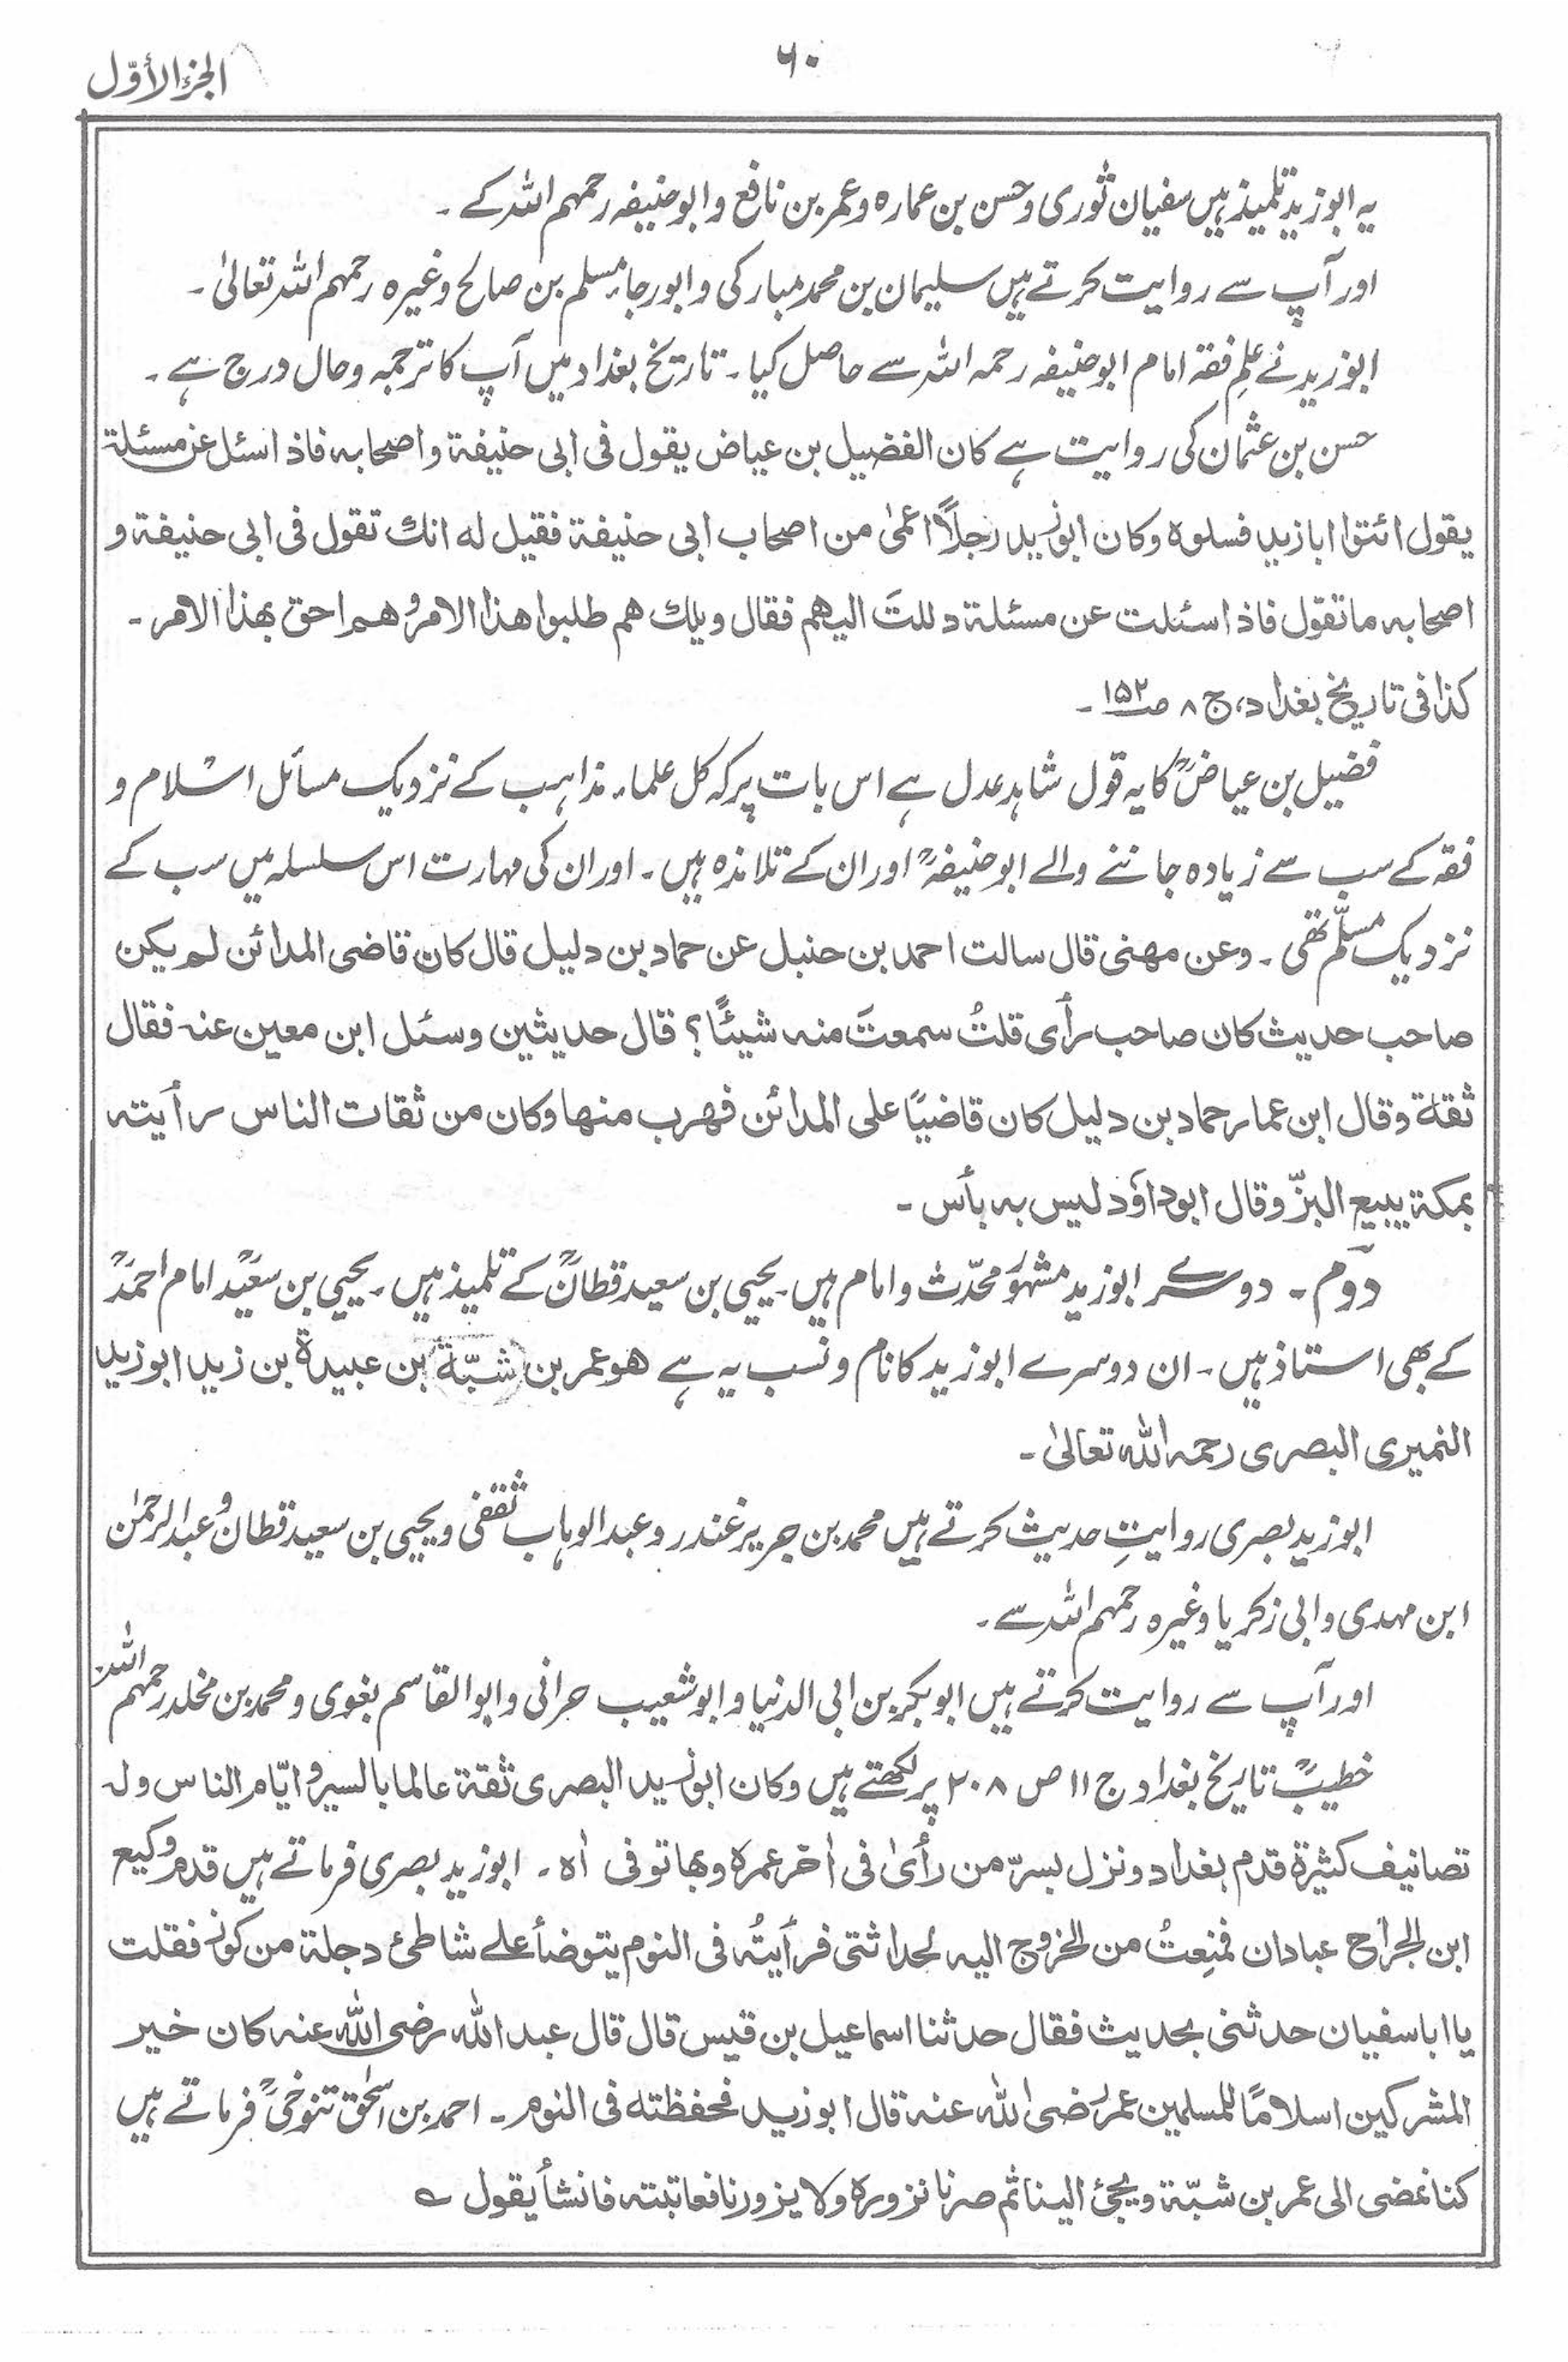 ۶۰
الجزء الأوّل
یہ ابوزید تلمیذ ہیں سفیان ثوری و حسن بن عمارہ و عمر بن نافع و ابوحنیفہ رحمہم اللہ کے ۔
اور آپ سے روایت کرتے ہیں سلیمان بن محمد مبارکی و ابورجاء مسلم بن صالح وغیرہ رحمہم اللہ تعالیٰ ۔
ابوزید نے علم فقہ امام ابوحنیفہ رحمہ اللہ سے حاصل کیا ۔ تاریخ بغداد میں آپ کا ترجمہ و حال درج ہے ۔
حسن بن عثمان کی روایت ہے کان الفضیل بن عیاض یقول فی ابی حنیفة و اصحابہ فاذا سئل عن مسئلة
یقول ائتوا ابا زید فسلوہ وکان ابوزید رجلاً اعمیٰ من اصحاب ابی حنیفة فقیل لہ انك تقول فی ابی حنیفة و
اصحابہ ما تقول فاذا سئلت عن مسئلة دللتَ الیھم فقال ویلك ھم طلبوا ھذا الامر و ھم احق بھذا الامر ۔
کذا فی تاریخ بغداد، ج ۸ ص ۱۵۲ ۔
فضیل بن عیاضؒ کا یہ قول شاہد عدل ہے اس بات پر کہ کل علماء مذاہب کے نزدیک مسائل اسلام و
فقہ کے سب سے زیادہ جاننے والے ابوحنیفہؒ اور ان کے تلامذہ ہیں ۔ اور ان کی مہارت اس سلسلہ میں سب کے
نزدیک مسلّم تھی ۔ وعن مھنی قال سالت احمد بن حنبل عن حماد بن دلیل قال کان قاضی المدائن لم یکن
صاحب حدیث کان صاحب رأی قلتُ سمعتَ منہ شیئًا؟ قال حدیثین وسئل ابن معین عنہ فقال
ثقة وقال ابن عمار حماد بن دلیل کان قاضیًا علی المدائن فھرب منھا وکان من ثقات الناس رأیتہ
بمکة یبیع البزّ وقال ابوداؤد لیس بہ بأس ۔
دوّم ۔ دوسرے ابوزید مشہور محدّث و امام ہیں ۔ یحیی بن سعید قطانؒ کے تلمیذ ہیں ۔ یحیی بن سعیدؒ امام احمدؒ
کے بھی استاذ ہیں ۔ ان دوسرے ابوزید کا نام و نسب یہ ہے ھو عمر بن شبّة بن عبیدة بن زید ابوزید
النمیری البصری رحمہ اللہ تعالیٰ ۔
ابوزید بصری روایتِ حدیث کرتے ہیں محمد بن جریر غندر و عبدالوہاب ثقفی و یحیی بن سعید قطان و عبدالرحمٰن
ابن مہدی و ابی زکریا وغیرہ رحمہم اللہ سے ۔
اور آپ سے روایت کرتے ہیں ابوبکر بن ابی الدنیا و ابوشعیب حرانی و ابوالقاسم بغوی و محمد بن مخلد رحمہم اللہ ۔
خطیبؒ تاریخ بغداد ج ۱۱ ص ۲۰۸ پر لکھتے ہیں وکان ابوزید البصری ثقة عالما بالسیر و ایّام الناس ولہ
تصانیف کثیرة قدم بغداد ونزل بسرّ من رأیٰ فی اٰخر عمرہ وبھا توفی اھ ۔ ابوزید بصری فرماتے ہیں قدم وکیع
ابن الجراح عبادان فمُنِعتُ من الخروج الیہ لحداثتی فرأیتُہ فی النوم یتوضأ علے شاطئ دجلة من کوز فقلت
یا ابا سفیان حدثنی بحدیث فقال حدثنا اسماعیل بن قیس قال قال عبد اللہ رضی اللہ عنہ کان خیر
المشرکین اسلامًا للمسلمین عمر رضی اللہ عنہ قال ابوزید فحفظتہ فی النوم ۔ احمد بن اسحٰق تنوخیؒ فرماتے ہیں
کنا نمضی الی عمر بن شبّة ویجئ الینا ثم صرنا نزورہ ولا یزورنا فعاتبتہ فانشأ یقول ؎